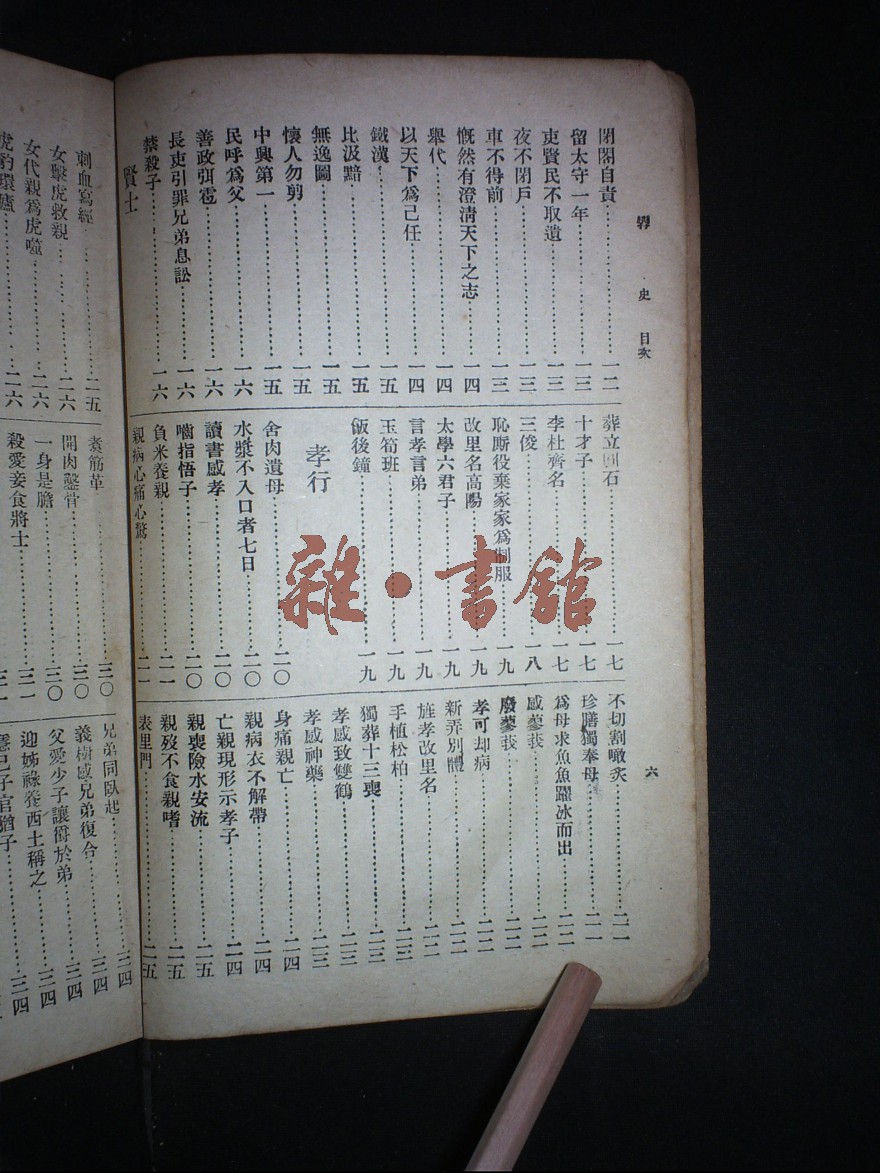 史 目次
六
閉閣自責⋯⋯一二
留太守一年⋯⋯一三
吏賢民不取遺⋯⋯一三
夜不閉戶⋯⋯一三
車不得前⋯⋯一三
慨然有澄淸天下之志⋯⋯一四
舉代⋯⋯一四
以天下爲己任⋯⋯一四
鐵漢⋯⋯一五
比汲黯⋯⋯一五
無逸圖⋯⋯一五
懷人勿剪⋯⋯一五
中興第一⋯⋯一五
民呼爲父⋯⋯一六
善政弭雹⋯⋯一六
長吏引罪兄弟息訟⋯⋯一六
禁殺子⋯⋯一六
賢士
葬立圓石⋯⋯一七
十才子⋯⋯一七
李杜齊名⋯⋯一七
三俊⋯⋯一八
恥廝役棄家家爲制服⋯⋯一九
改里名高陽⋯⋯一九
太學六君子⋯⋯一九
言孝言弟⋯⋯一九
玉筍班⋯⋯一九
飯後鐘⋯⋯一九
孝行
舍肉遺母⋯⋯二〇
水漿不入口者七日⋯⋯二〇
讀書感孝⋯⋯二〇
嚙指悟子⋯⋯二〇
負米養親⋯⋯二一
親病心痛心驚⋯⋯二一
不切割噉炙⋯⋯二一
珍膳獨奉母⋯⋯二一
爲母求魚魚躍冰而出⋯⋯二二
感蓼莪⋯⋯二二
廢蓼莪⋯⋯二二
孝可却病⋯⋯二二
新弄別體⋯⋯二二
旌孝改里名⋯⋯二二
手植松柏⋯⋯二三
獨葬十三喪⋯⋯二三
孝感致雙鶴⋯⋯二三
孝感神藥⋯⋯二三
身痛親亡⋯⋯二四
親病衣不解帶⋯⋯二四
亡親現形示孝子⋯⋯二四
親喪險水安流⋯⋯二五
親歿不食親嗜⋯⋯二五
表里門⋯⋯二五
刺血寫經⋯⋯二五
女擊虎救親⋯⋯二六
女代親爲虎噬⋯⋯二六
虎豹環廬⋯⋯二六
煮筋革⋯⋯三〇
開肉鑿骨⋯⋯三〇
一身是膽⋯⋯三〇
殺愛妾食將士⋯⋯三一
兄弟同臥起⋯⋯三四
義樹感兄弟復合⋯⋯三四
父愛少子讓爵於弟⋯⋯三四
迎姊祿養西土稱之⋯⋯三四
己子官猶子
雜·書館